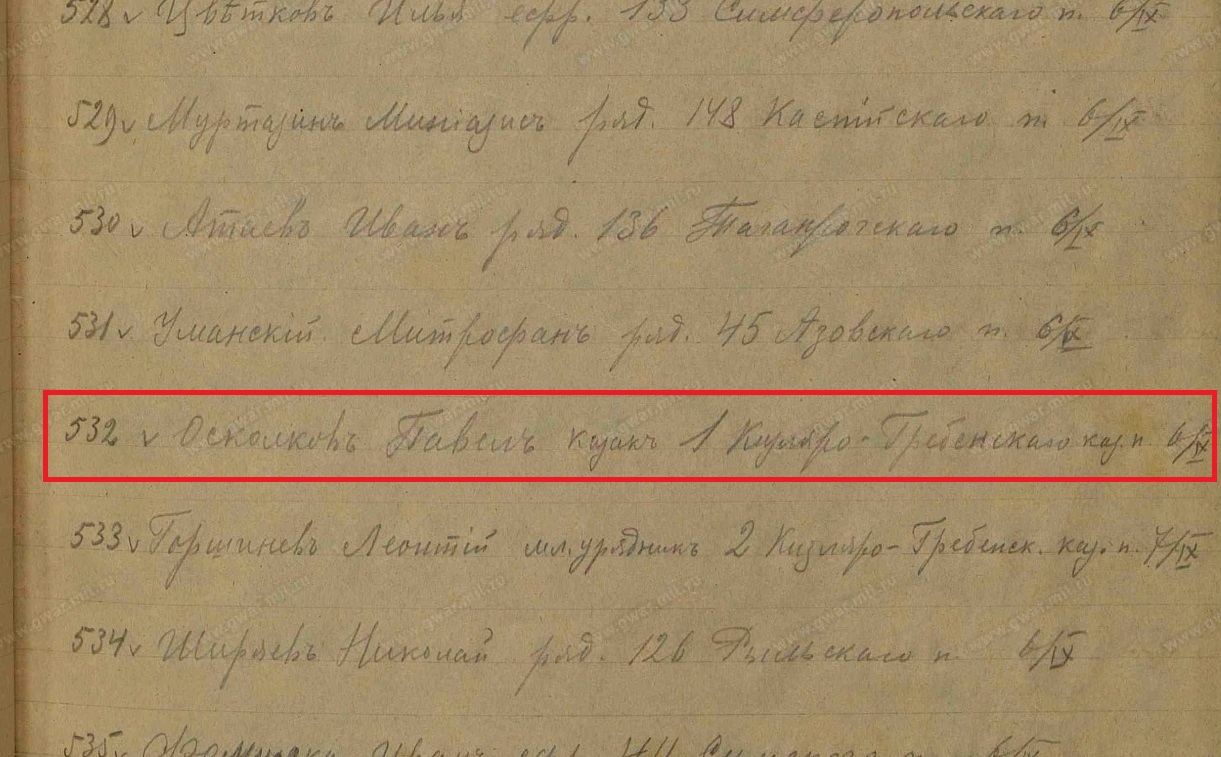 528 Цвѣтковъ Илья ефр. 133 Симферопольскаго п. 6/IX
529 v Муртазинъ ряд. 148 Каспійскаго п. 6/IX
530 v Атаевъ Иванъ ряд. 136 Таганрогскаго п. 6/IX
531 v Уманскій Митрофанъ ряд. 45 Азовскаго п. 6/IX
532 v Осколковъ Павелъ казакъ 1 Кизляро-Гребенскаго каз. п. 6/IX
533 v Горшиневъ Леонтій мл. урядникъ 2 Кизляро-Гребенск. каз. п. 7/IX
534 v Ширяевъ Николай ряд. 126 Рыльскаго п. 6/IX
535 v Иванъ